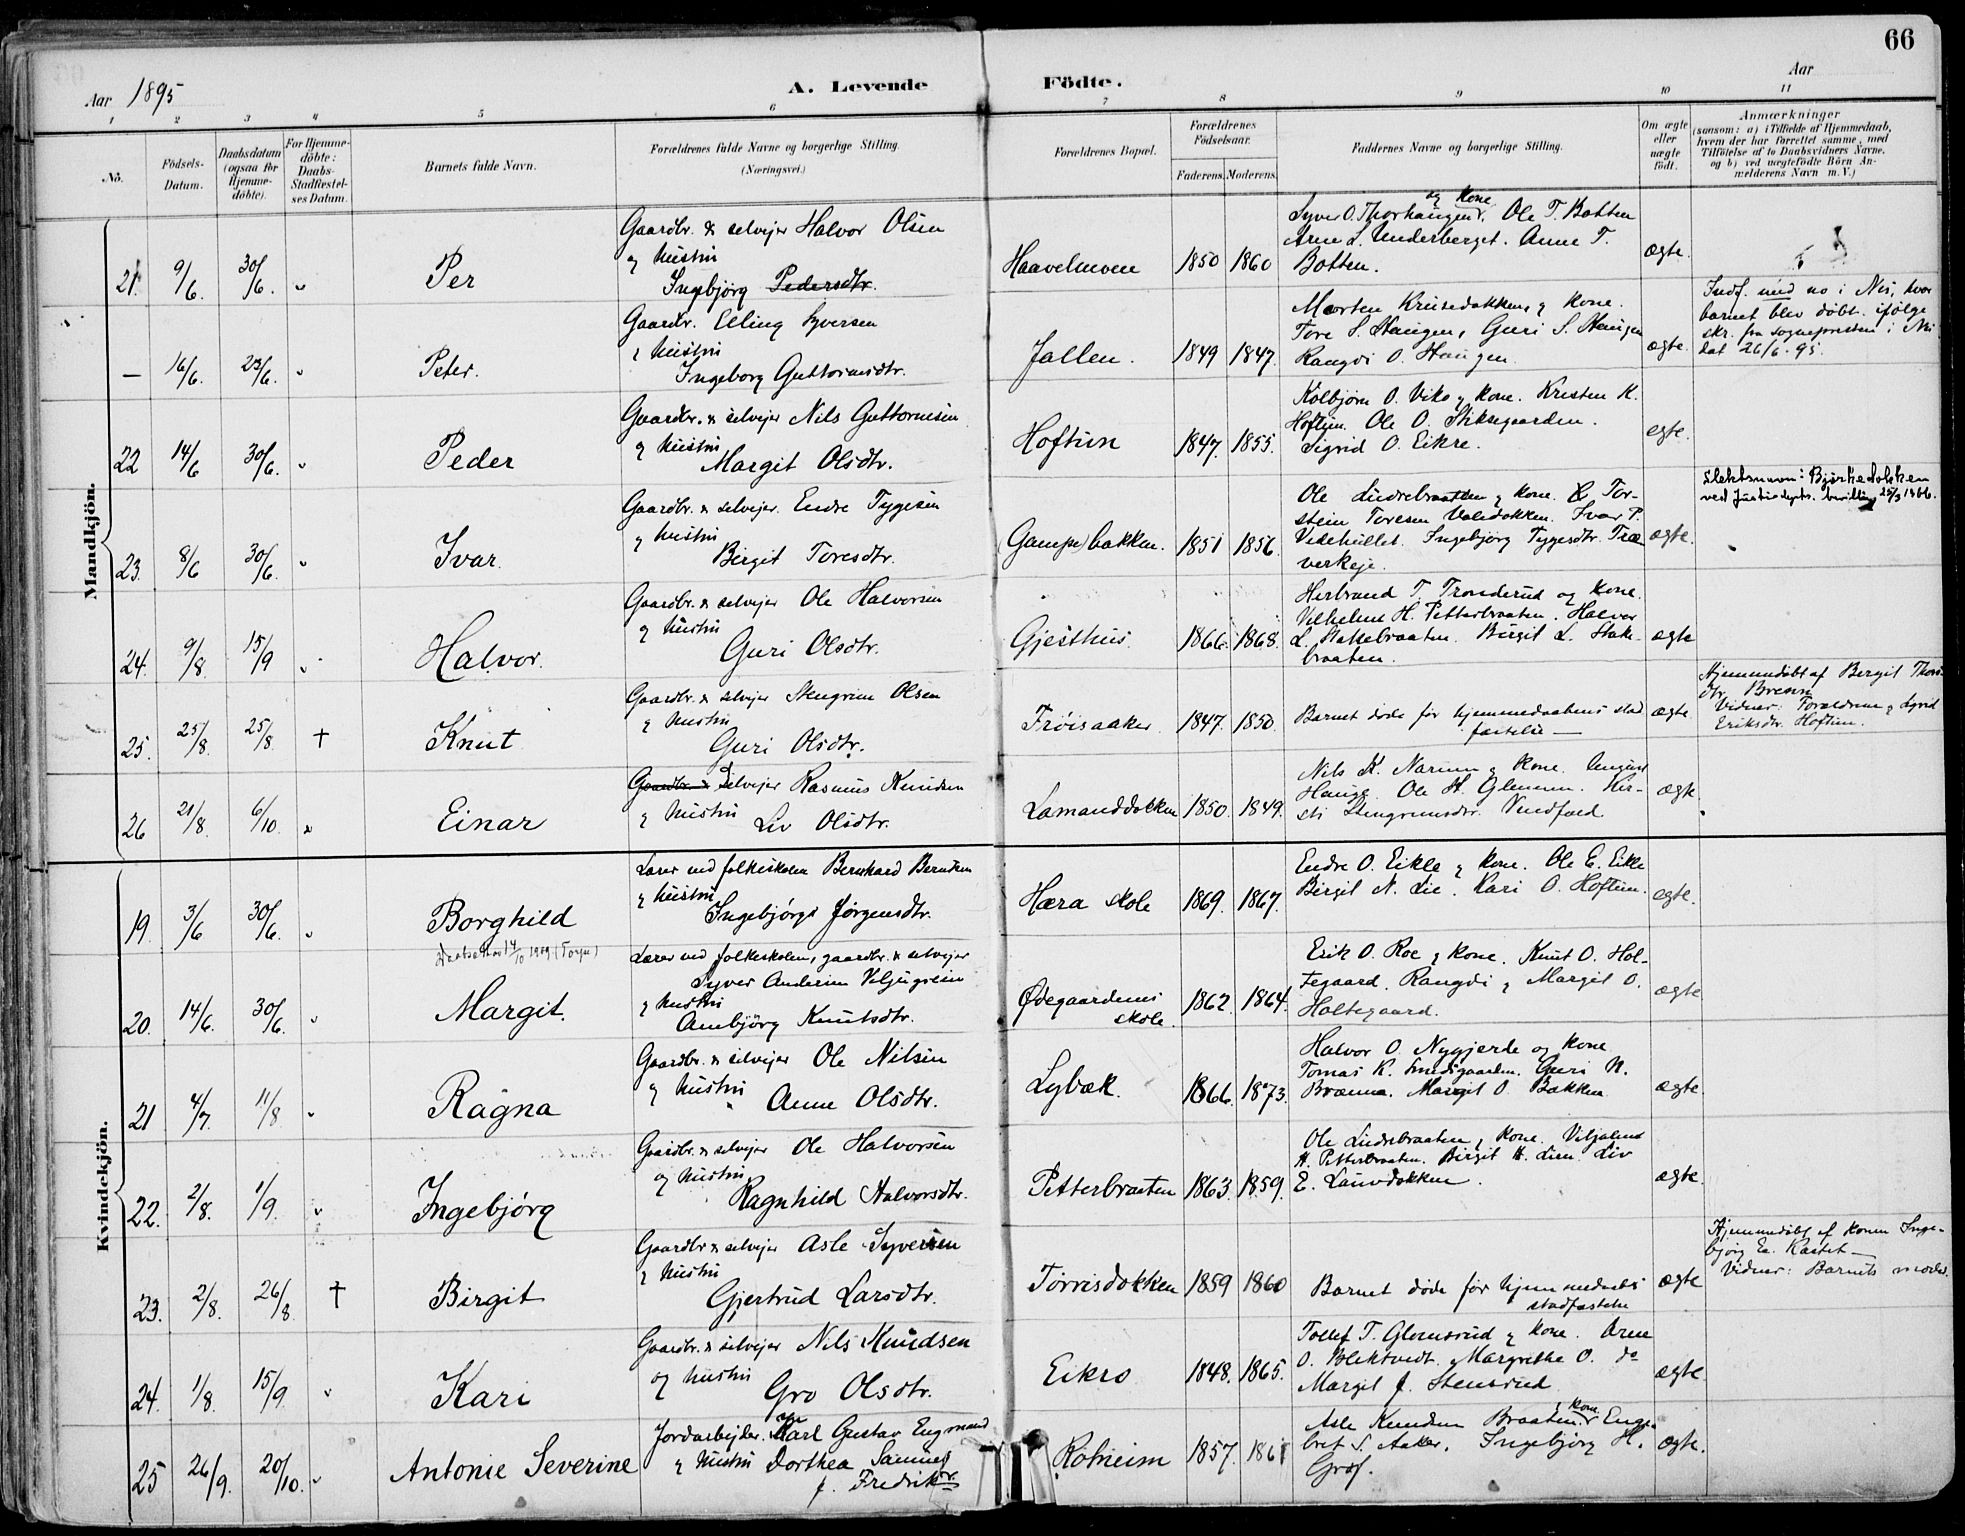 66
Aar 1895
A. Levende Födte.
Aar
1 2 3 4 5 6 7 8 9 10 11
No.
Födsels-Datum.
Daabsdatum (ogsaa for Hjemme-döbte).
For Hjemme-döbte: Daabs-Stadfæstel-ses Datum.
Barnets fulde Navn.
Forældrenes fulde Navne og borgerlige Stilling. (Næringsvei.)
Forældrenes Bopæl.
Forældrenes Födselsaar.
Faderens. Moderens.
Faddernes Navne og borgerlige Stilling.
Om ægte eller uægte födt.
Anmærkninger
(saasom: a) i Tilfælde af Hjemmedaab, hvem der har forrettet samme, med Tilföielse af to Daabsvidners Navne, og b) ved uægtefödte Börn An-mælderens Navn m. V.)
Mandkjön.
21. 9/6. 30/6. " Per
Gaardbr. & selvejer Halvor Olsen
og hustru
Ingebjörg Pedersdtr.
Haavelmoen 1850 1860
Syver O. Thorhaugen og kone. Ole T. Botten
Arne L. Underberget. Anne T.
Botten.
ægte.
— 16/6. 23/6. " Peter.
Gaardbr. Elling Syversen
& hustru
Ingeborg Guttormsdtr.
Jallen. 1849 1847.
Morten Krusedokken & kone.
Tore S. Haugen, Guri S. Haugen
Rangdi O. Haugen.
ægte.
Indf. uted no i Nes, hvor
barnet blev döbt. ifölge
skr. fra sognepresten i Nes
dat 26/6. 95.
22 14/6 30/6. " Peder
Gaardbr. & selvejer Nils Guttormsen
& hustru
Margit Olsdtr.
Hoftun 1847. 1855.
Kolbjörn O. Viko & kone. Kristen K.
Hoftun. Ole O. Stiksgaarden.
Sigrid O. Eikre.
egte.
23. 8/6 30/6. " Ivar.
Gaardbr. & selvejer. Endre Tygesen
& hustru
Birgit Toresdtr.
Gampebakken. 1851 1856.
Ole Lindrebraatten & kone. Tor-
stein Toresen Volidokken. Ivar P.
Videhullet. Ingebjörg Tyggesdtr. Træ-
verkeje.
ægte.
Slektsnavn: Bjørkedokken
ved Justisdepts. bevilling 25/3 1966.
24. 9/8. 15/9 " Halvor.
Gaardbr. & selvejer Ole Halvorsen
& hustru
Guri Olsdtr.
Gjesthus 1866. 1868.
Herbrand T. Tronderud og kone.
Vilhelm H. Petterbraaten. Halvor
L. Stakebraaten. Birgit L. Stake-
braaten.
ægte
25. 25/8. 25/8. † Knut
Gaardbr. & selvejer Stengrim Olsen
& hustru
Guri Olsdtr.
Fröisaaker 1847. 1850.
Barnet döde för hjemmedaabens stad
fæstelse —
ægte
Hjemmedöbt af Bergit Thors
dtr. Brenn
Vidner: Forældrene & Sigrid
Eriksdtr. Hoftun.
26 21/8. 6/10. " Einar
Gaardbr. & Selvejer Rasmus Knudsen
& hustru
Liv Olsdtr.
Lomanddokken 1850. 1849.
Nils K. Narum & kone. August
Hauge. Ole H. Glemmen. Kir-
sti Stengrimsdtr. Vindfald.
ægte
Kvindekjön.
19. 3/6 30/6. " Borghild
Lærer ved folkeskolen Bernhard Berntsen
& hustru
Ingebjörg Jörgensdtr.
Hæra skole 1869. 1867.
Endre O. Eikle & kone. Ole E. Eikle
Birgit N. Lie. Kari O. Hoftun.
ægte.
20. 14/6. 30/6. " Margit.
Lærer ved folkeskolen, gaardbr. & selvejer
Syver Andersen Veljugrein
& hustru
Ambjörg Knutsdtr.
Ødegaardens
skole. 1862. 1864.
Erik O. Roe & kone. Knut O. Hol-
tegaard. Rangdi & Margit O.
Holtegaard.
ægte
21 4/7. 11/8. " Ragna
Gaardbr. & selvejer Ole Nilsen
& hustru
Anne Olsdtr.
Lybæk. 1866. 1873.
Halvor O. Nygjerde og kone
Tomas K. Smedsgaarden. Guri N.
Brænna. Margit O. Bakken
ægte.
22. 2/8. 1/9. " Ingebjørg
Gaardbr. & selvejer Ole Halvorsen
og hustru
Ragnhild Halvorsdtr.
Petterbraaten 1863. 1859.
Ole Lindrebraaten & kone. Viljalm
H. Petterbraaten. Birgit H. Lien. Liv
E. Lauvdokken.
ægte.
23. 2/8. 26/8. † Birgit
Gaardbr. & selvejer Asle Syversen
& hustru
Gjertrud Larsdtr.
Torrisdokken 1859 1860
Barnet döde för hjemmedaabs
stadfæstelse
ægte
Hjemmedöbt af konen Inge-
björg Ea. Kastet —
Vidner: Barnets moder.
24. 1/8. 15/9. " Kari
Gaardbr. & selvejer Nils Knudsen
og hustru
Gro Olsdtr.
Eikro 1848. 1865.
Tollef T. Glomsrud & kone. Arne
O. Blektvedt. Margrethe O. do
Margit J. Stensrud.
ægte.
25 26/9. 20/10. " Antonie Severine
Jordarbejder. Karl Gustav Engmand
& hustru Dorthea Samuel
f. Fredrik
Rotneim 1857. 1861
Asle Knudsen Braaten & kone. Enge-
bret S. Aaker. Ingebjörg H.
Gröf.
ægte.